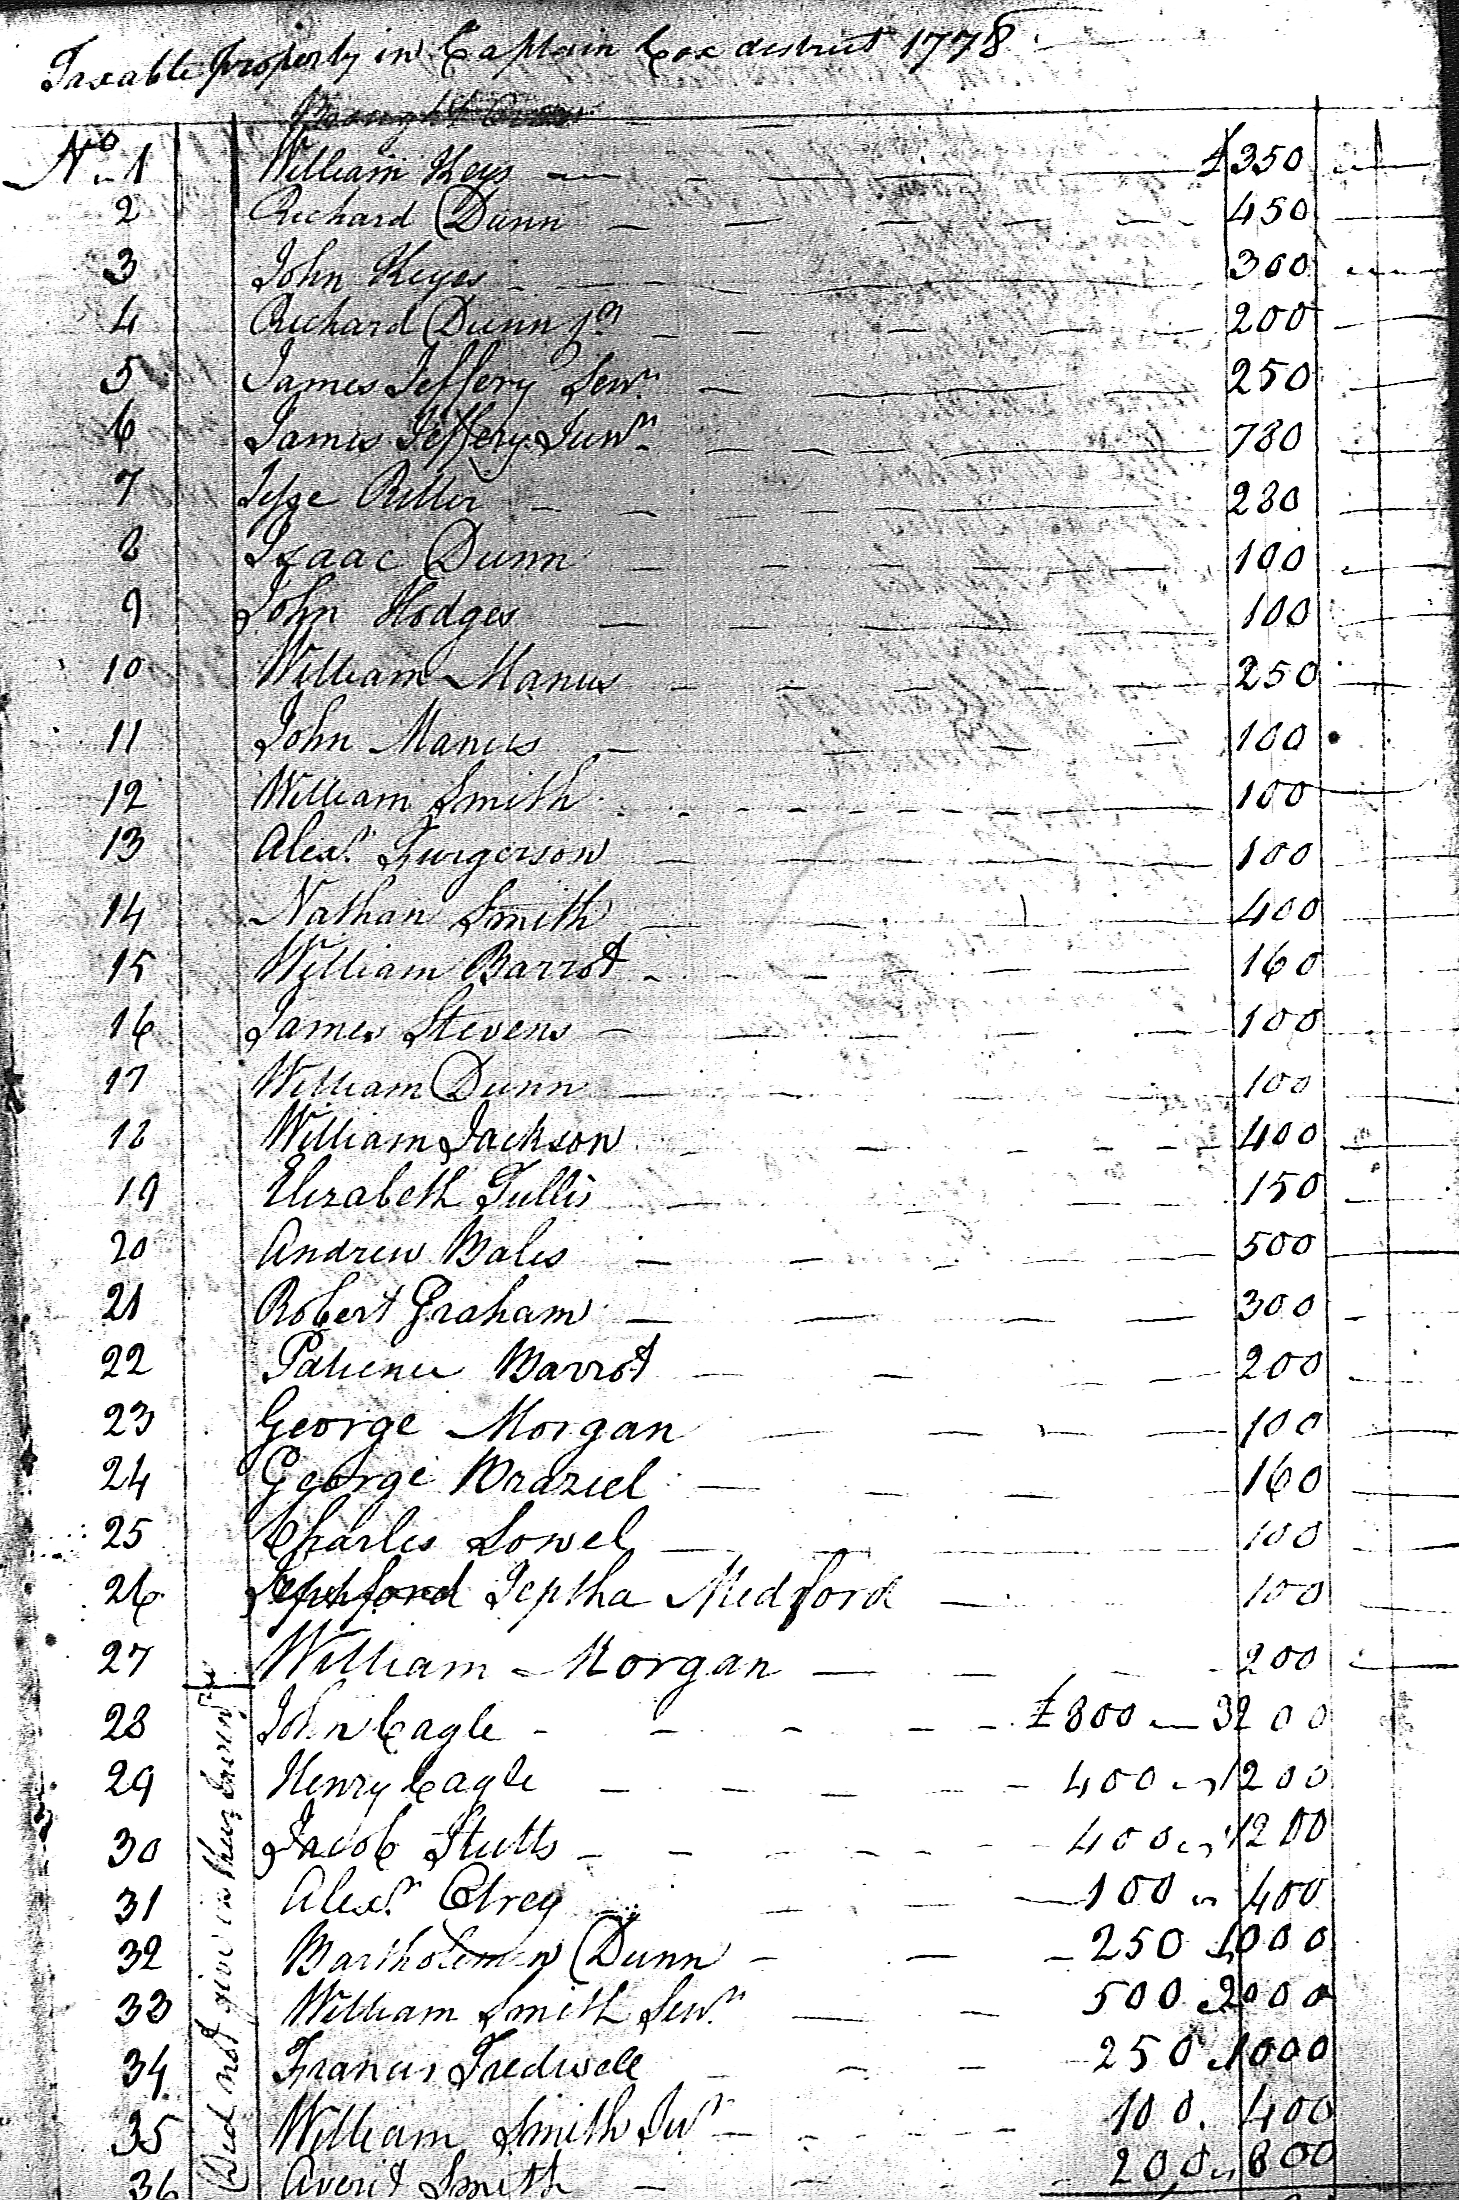 Taxable property in Captain Cox district 1778
Brought Over
No 1 William Keys £350
2 Richard Dunn 450
3 John Keyes 300
4 Richard Dunn jr 200
5 James Jeffery Senr 250
6 James Jeffery Junr 780
7 Jesse Ritter 280
8 Isaac Dunn 100
9 John Hodges 100
10 William Manus 250
11 John Manus 100
12 William Smith 100
13 Alexr Furgerson 100
14 Nathan Smith 400
15 William Barrot 160
16 James Stevens 100
17 William Dunn 100
18 William Jackson 400
19 Elizabeth Tullis 150
20 Andrew Bales 500
21 Robert Graham 300
22 Patience Barrot 200
23 George Morgan 100
24 George Braziel 160
25 Charles Sowel 100
26 Jeptha Medford 100
27 William Morgan 200
28 John Cagle £800 3200
29 Henry Cagle 400 1200
30 Jacob Stutts 400 1200
31 Alexr Atrey 100 400
32 Bartholemew Dunn 250 1000
33 William Smith Senr 500 2000
34 Francis Tredwell 250 1000
35 William Smith Jur 100 400
36 Averit Smith 200 800
Did not give in their